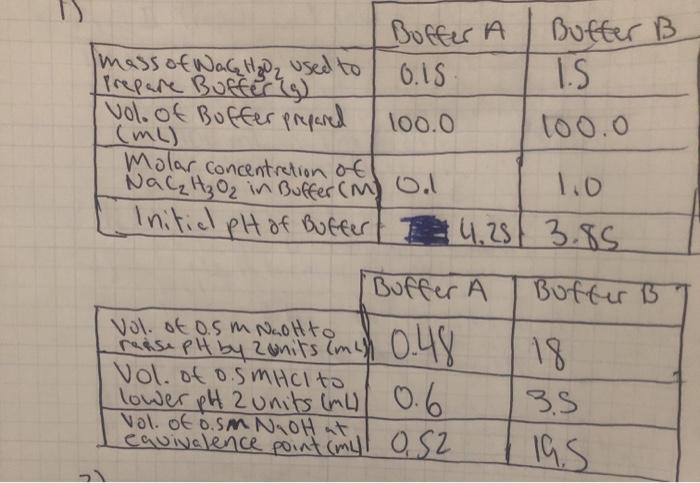 1)
Buffer A Buffer B
Mass of NaC2H3O2 used to
prepare Buffer (g) 0.15 1.5
Vol. of Buffer prepared
(mL) 100.0 100.0
Molar concentration of
NaC2H3O2 in Buffer (M) 0.1 1.0
Initial pH of Buffer 4.25 3.85
Buffer A Buffer B
Vol. of 0.5 M NaOH to
raise pH by 2 units (mL) 0.48 18
Vol. of 0.5 M HCl to
lower pH 2 units (mL) 0.6 3.5
Vol. of 0.5M NaOH at
equivalence point (mL) 0.52 19.5
2)